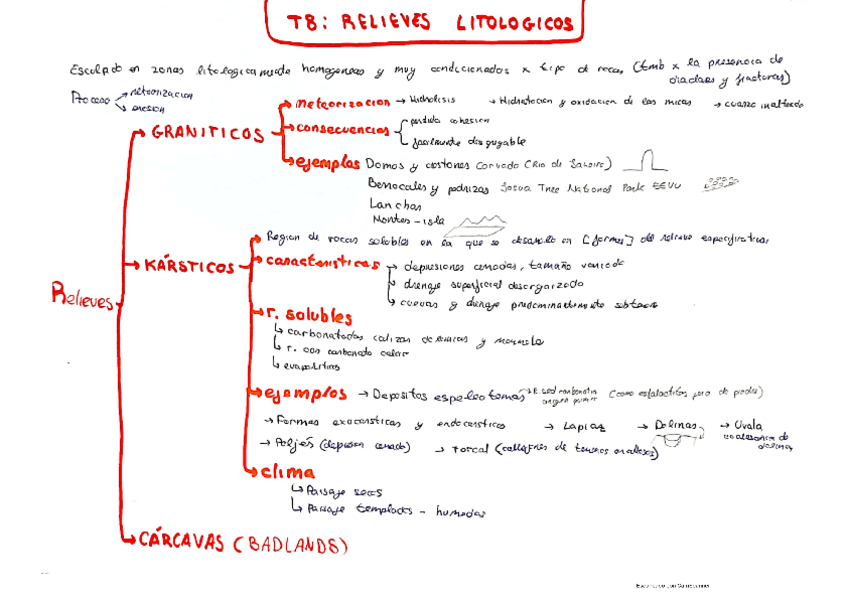 T8: RELIEVES LITOLOGICOS
Esculpido en zonas litologicamente homogeneas y muy condicionados x tipo de rocas (tmb x la presencia de diaclasas y fracturas)
Proceso meteorizacion
erosion
GRANITICOS
meteorizacion → Hidrolisis → Hidratacion y oxidacion de las micas → cuarzo inalterado
consecuencias
perdida cohesion
facilmente disgregable
ejemplos Domos y
Corvado (Rio de Janeiro)
Berrocales y pedrizas Josua Tree National Park EEUU
Lanchas
Montes-isla
Relieves
KÁRSTICOS
Region de rocas solubles en la que se desarrollan [formas] de relieve especificas
caracteristicas
depresiones cerradas, tamaño variado
drenaje superficial desorganizado
cuevas y drenaje predominantemente subterr
r. solubles
carbonatadas calizas dolomias y marmoles
r. con carbonato
evaporitas
ejemplos → Depositos espeleotemas
(como estalactitas pero de piedra)
→ Formas exocarsticas y endocarsticas → Lapiaz → Dolinas → Uvala
coalescencia de dolinas
→ Poljés (depresion cerrada) → Torcal (callejones de
clima
Paisaje secos
Paisaje templados - humedos
CÁRCAVAS (BADLANDS)
Escaneado con CamScanner